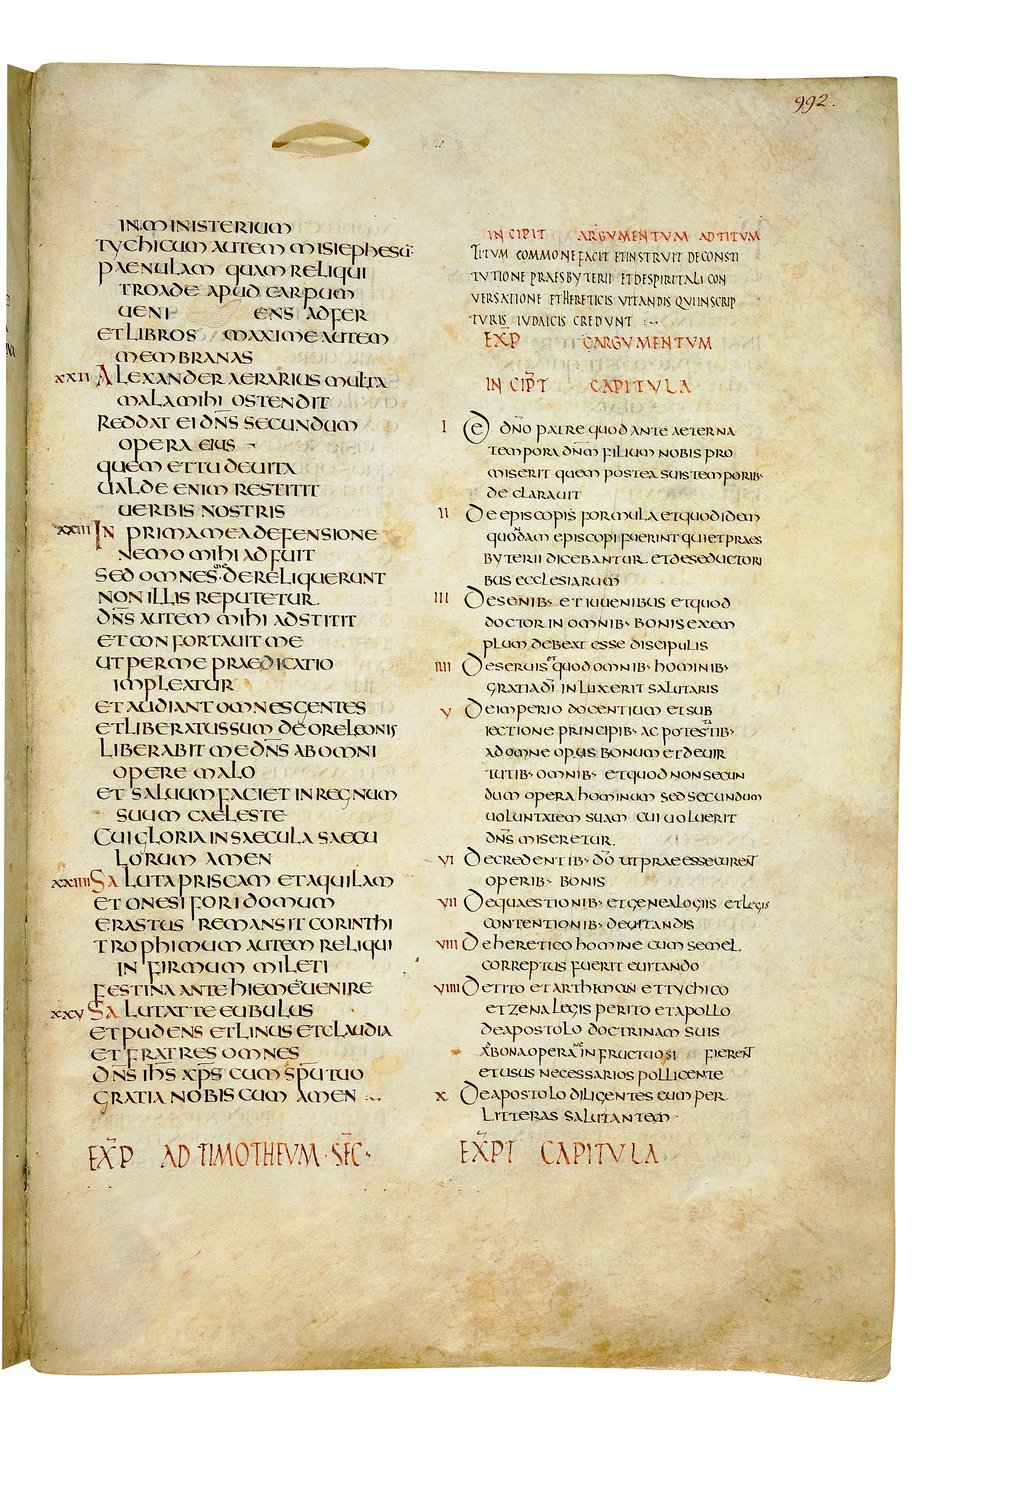 992.
IN MINISTERIUM
TYCHICUM AUTEM MISI EPHESŪ·
PAENULAM QUAM RELIQUI
TROADE APUD CARPUM
UENI ENS ADFER
ET LIBROS MAXIME AUTEM
MEMBRANAS
XXII ALEXANDER AERARIUS MULTA
MALA MIHI OSTENDIT
REDDAT EI DN̄S SECUNDUM
OPERA EIUS
QUEM ET TU DEUITA
UALDE ENIM RESTITIT
UERBIS NOSTRIS
XXIII IN PRIMA MEA DEFENSIONE
NEMO MIHI ADFUIT
SED OMNES ME DERELIQUERUNT
NON ILLIS REPUTETUR.
DN̄S AUTEM MIHI ADSTITIT
ET CONFORTAUIT ME
UT PER ME PRAEDICATIO
IMPLEATUR
ET AUDIANT OMNES GENTES
ET LIBERATUS SUM DE ORE LEONIS
LIBERABIT ME DN̄S AB OMNI
OPERE MALO
ET SALUUM FACIET IN REGNUM
SUUM CAELESTE
CUI GLORIA IN SAECULA SAECU
LORUM AMEN
XXIIII SALUTA PRISCAM ET AQUILAM
ET ONESIFORI DOMUM
ERASTUS REMANSIT CORINTHI
TROPHIMUM AUTEM RELIQUI
INFIRMUM MILETI
FESTINA ANTE HIEMĒ UENIRE
XXV SALUTAT TE EUBULUS
ET PUDENS ET LINUS ET CLAUDIA
ET FRATRES OMNES
DN̄S IH̄S XP̄S CUM SP̄U TUO
GRATIA NOBISCUM AMEN
EXP̄ AD TIMOTHEUM · SEC̄·
INCIPIT ARGVMENTVM AD TITVM
TITVM COMMONEFACIT ET INSTRVIT DE CONSTI
TVTIONE PRAESBYTERII ET DE SPIRITALI CON
VERSATIONE ET HERETICIS VITANDIS QVI IN SCRIP
TVRIS IVDAICIS CREDVNT
EXP̄ ARGVMENTVM
INCIP̄T CAPITVLA
I DE DN̄O PATRE QUOD ANTE AETERNA
TEMPORA DN̄M FILIUM NOBIS PRO
MISERIT QUEM POSTEA SUIS TEMPORIB·
DECLARAUIT
II DE EPISCOPIS FORMULA ET QUOD IDEM
QUODAM EPISCOPI FUERINT QUI ET PRAES
BYTERII DICEBANTUR. ET DE SEDUCTORI
BUS ECCLESIARUM
III DE SENIB· ET IUUENIBUS ET QUOD
DOCTOR IN OMNIB· BONIS EXEM
PLUM DEBEAT ESSE DISCIPULIS
IIII DE SERUIS ET QUOD OMNIB· HOMINIB·
GRATIA DĪ INLUXERIT SALUTARIS
V DE IMPERIO DOCENTIUM ET SUB
IECTIONE PRINCIPIB· AC POTESTATIB·
AD OMNE OPUS BONUM ET DE UIR
TUTIB· OMNIB· ET QUOD NON SECUN
DUM OPERA HOMINUM SED SECUNDUM
UOLUNTATEM SUAM CUI UOLUERIT
DN̄S MISERETUR.
VI DE CREDENTIB· DŌ UT PRAEESSE CURENT
OPERIB· BONIS
VII DE QUAESTIONIB· ET GENEALOGIIS ET LEGIS
CONTENTIONIB· DEUITANDIS
VIII DE HERETICO HOMINE CUM SEMEL
CORREPTUS FUERIT EUITANDO
VIIII DE TITO ET ARTHEMAN ET TYCHICO
ET ZENA LEGIS PERITO ET APOLLO
DE APOSTOLO DOCTRINAM SUIS
INFRUCTUOSI FIERENT
ET USUS NECESSARIOS POLLICENTE
X DE APOSTOLO DILIGENTES EUM PER
LITTERAS SALUTANTEM·
EXP̄T CAPITVLA